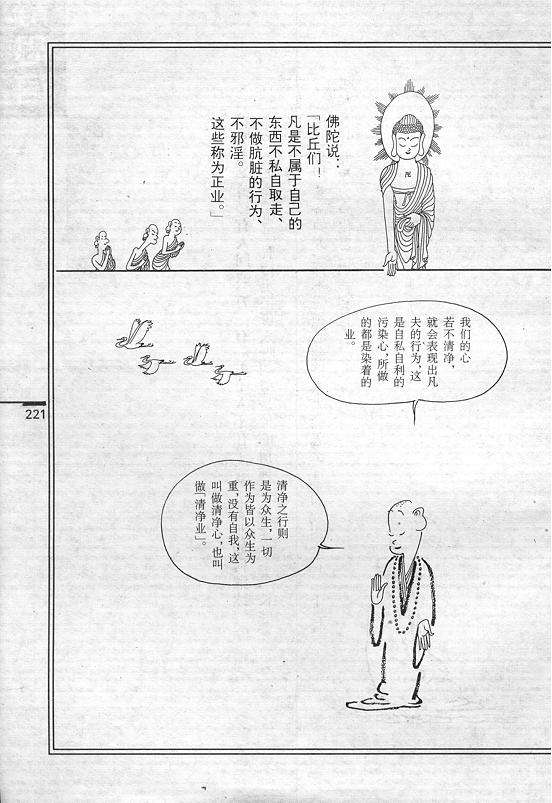 佛陀说：
「比丘们！
凡是不属于自己的
东西不私自取走、
不做肮脏的行为、
不邪淫。
这些称为正业。」
我们的心
若不清净，
就会表现出凡
夫的行为，这
是自私自利的
污染心，所做
的都是染着的
业。
清净之行则
是为众生，一切
作为皆以众生为
重，没有自我，这
叫做清净心，也叫
做「清净业」。
221